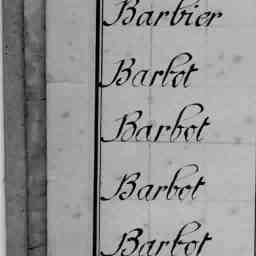 Barbier
Barbot
Barbot
Barbot
Barbot